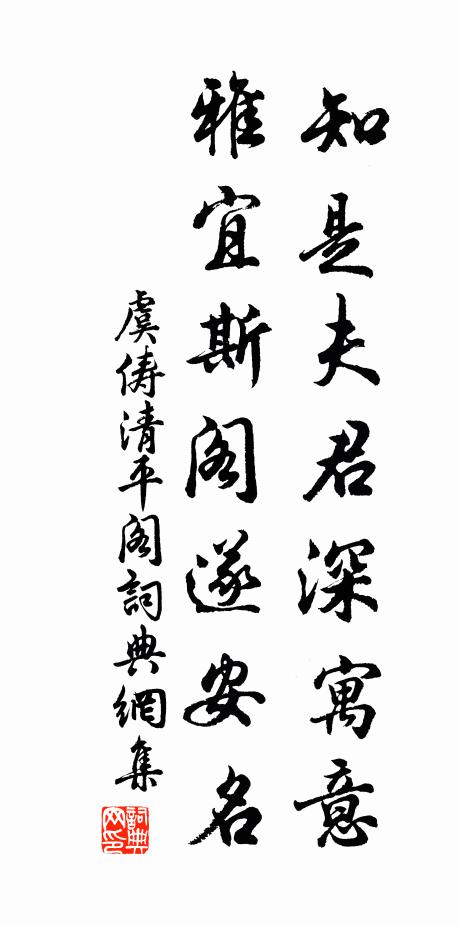 知是夫君深寓意
雅宜斯阁遂安名
虞俦清平阁詞典網集
詞典网印